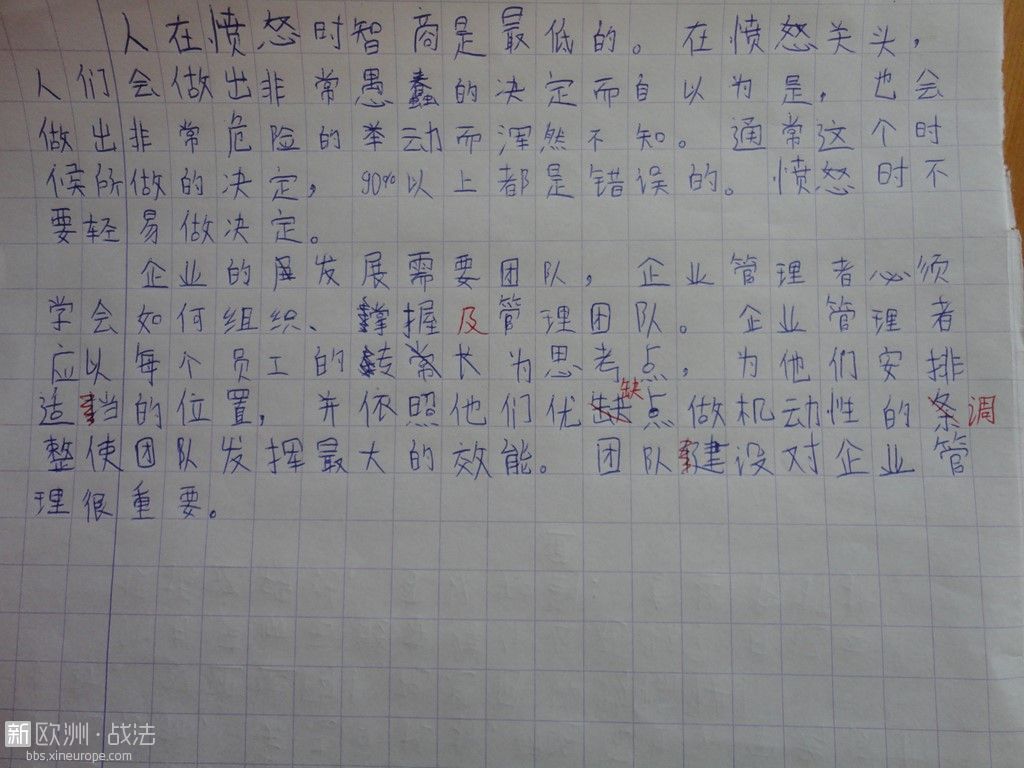 人在愤怒时智商是最低的。在愤怒关头，
人们会做出非常愚蠢的决定而自以为是，也会
做出非常危险的举动而浑然不知。通常这个时
候所做的决定，90%以上都是错误的。愤怒时不
要轻易做决定。
企业的发展需要团队，企业管理者必须
学会如何组织、掌握及管理团队。企业管理者
应以每个员工的长为思考点，为他们安排
适当的位置，并依照他们优缺点做机动性的调
整使团队发挥最大的效能。团队建设对企业管
理很重要。
新欧洲·战法
bbs.xineurope.com